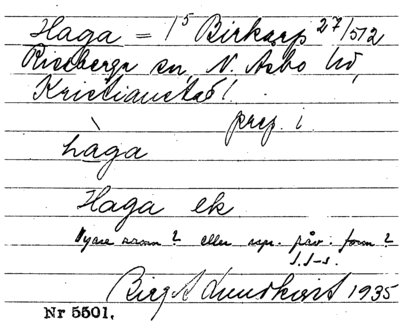 Haga = 1⁵ Birkarp 27/512
Riseberga sn, N. Åsbo hd,
Kristianstads l.
prep. i
hàga
Haga ek
Nyare namn? eller repr. påv. form?
Birgit Lundkvist 1935
Nr 5501.